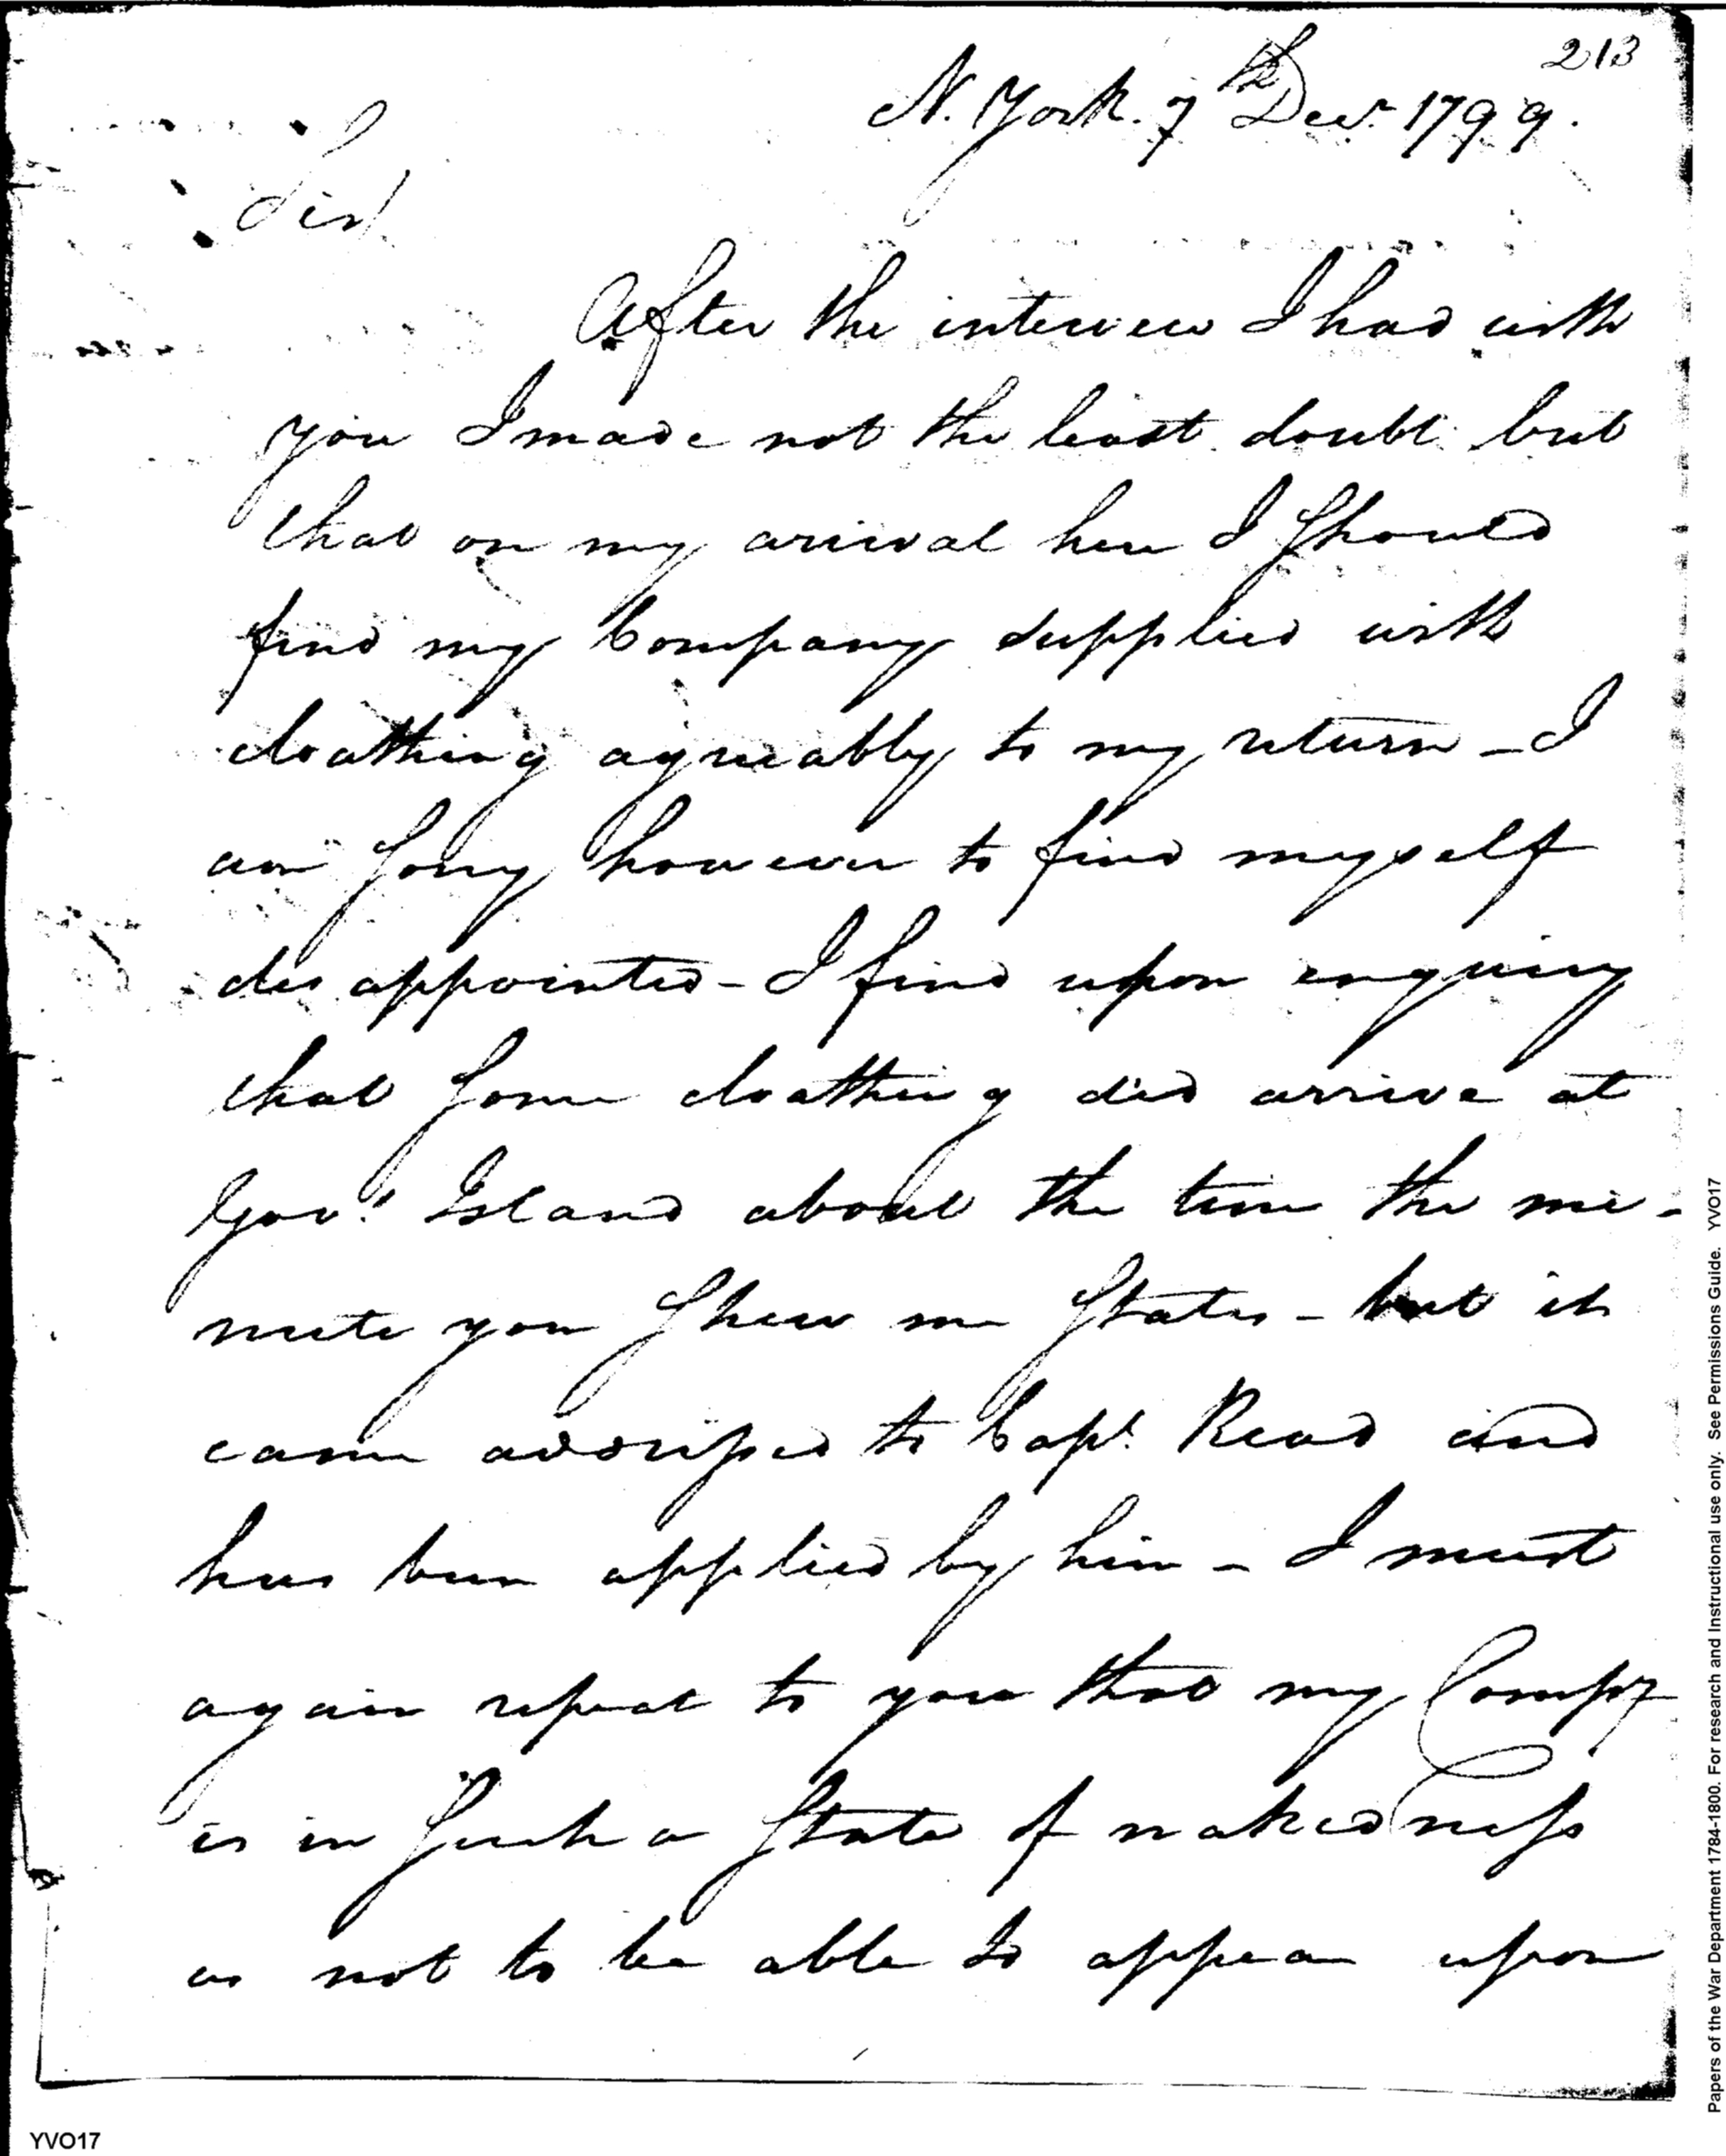 213
N. York. 7th Decr. 1799.
Sir
After the interview I had with
you I made not the least doubt but
that on my arival here I should
find my Company supplied with
cloathing agreeably to my return - I
am sorry however to find myself
disappointed - I find upon enquiry
that some cloathing did arrive at
Govrs. Island about the time the mi-
nute you shew me states - but it
came addressed to Capt. Read and
has been applied by him - I must
again repeat to you that my Compy
is in such a state of nakedness
as not to be able to appear upon
YVO17
Papers of the War Department 1784-1800. For research and Instructional use only. See Permissions Guide. YVO17